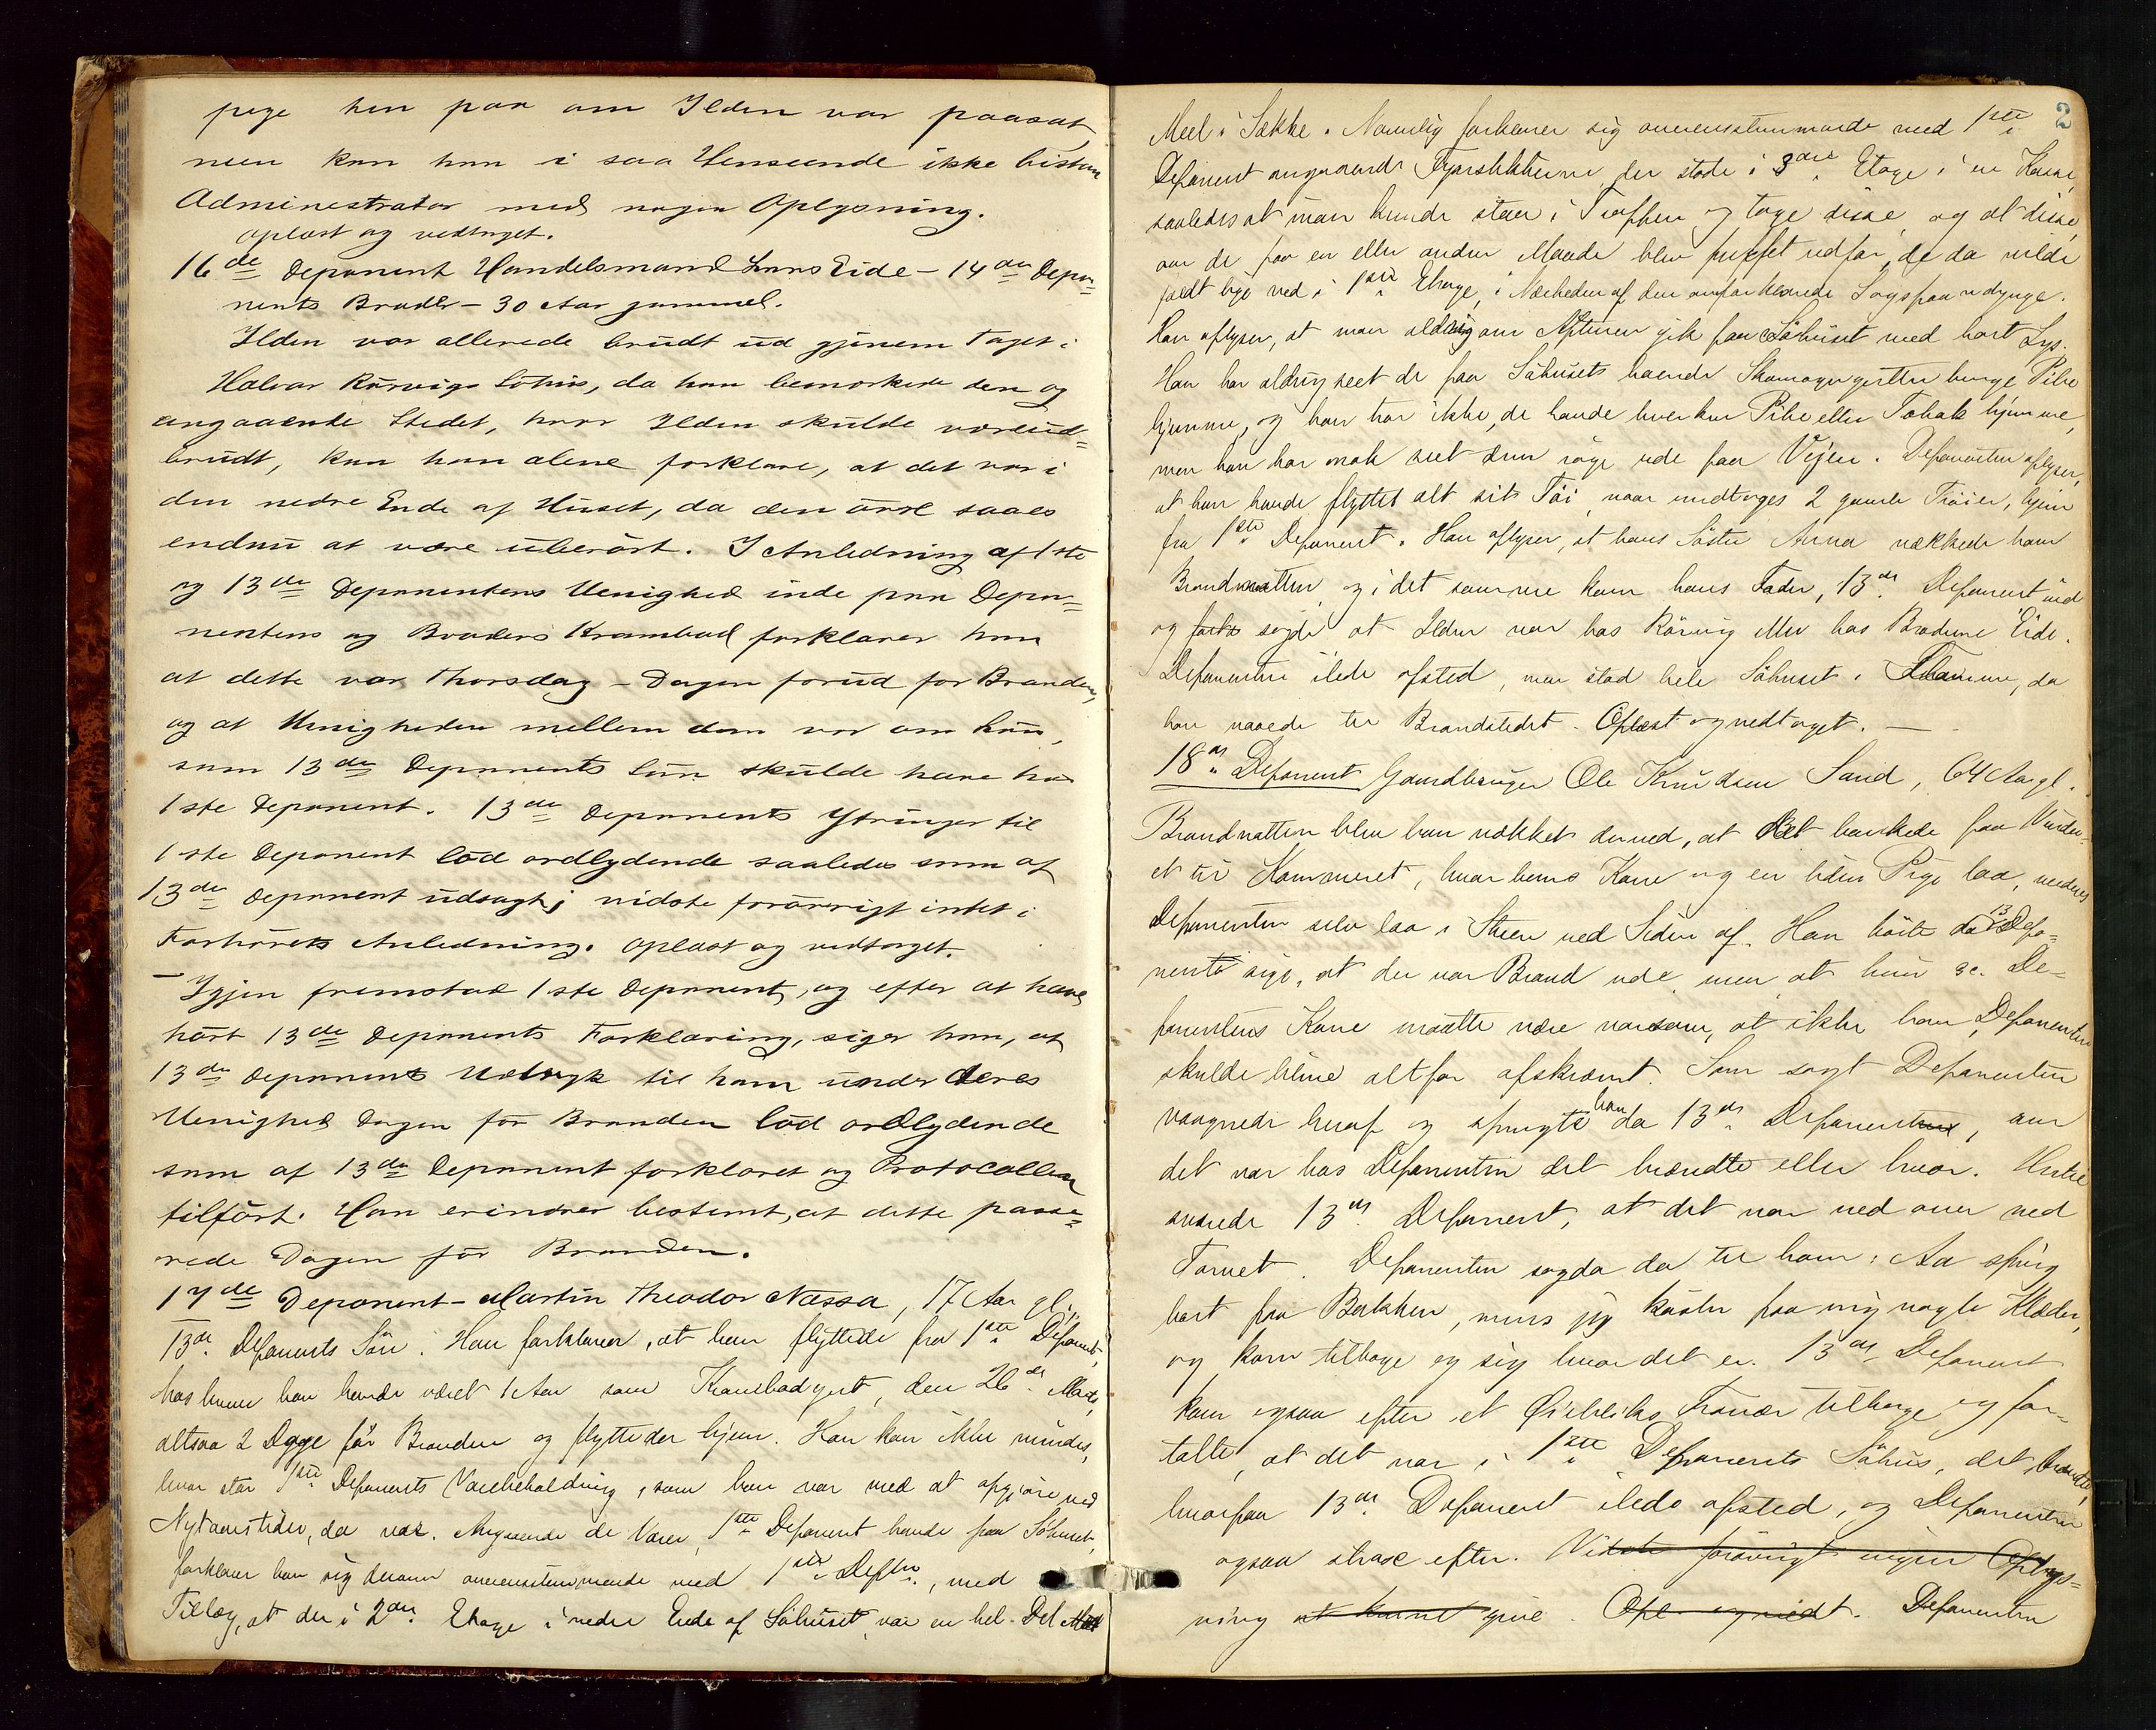 pege hen paa om Ilden var paasat,
men kan han i saa Henseende ikke bistaa
Administrator med nogen Oplysning.
Oplæst og vedtaget.
16de Deponent Handelsmand Lars Eide – 14de Depo=
nents Broder – 30 Aar gammel.
Ilden var allerede brudt ud gjennem Taget i
Halvor Rörvigs Söhus, da han bemærkede den og
angaaende Stedet, hvor Ilden skulde være ud=
brudt, kan han alene forklare, at det var i
den nedre Ende af Huset, da den övre saaes
endnu at være uberört. I Anledning af 1ste
og 13de Deponentens Uenighed inde paa Depo=
nentens og Broders Krambod forklarer han
at dette var Thorsdag – Dagen forud for Branden,
og at Uenigheden mellem dem var om Lön,
som 13de Deponents Sön skulde have hos
1ste Deponent. 13de Deponents Ytringer til
1ste Deponent löd ordlydende saaledes som af
13de Deponent udsagt; vidste forövrigt intet i
Forhörets Anledning. Oplæst og vedtaget.
– Igjen fremstod 1ste Deponent, og efter at have
hört 13de Deponents Forklaring, siger han, at
13de Deponents Udtryk til ham under deres
Uenighed Dagen för Branden löd ordlydende
som af 13de Deponent forklaret og Protocollen
tilfört. Han erindrer bestemt, at dette passe=
rede Dagen för Branden.
17de Deponent – Martin Theodor Næssa, 17 Aar gl.,
13de Deponents Sön. Han forklarer, at han flyttede fra 1ste Deponent,
hos hvem han havde været 1 Aar som Krambodgut, den 26de Marts,
altsaa 2 Dage för Branden og flyttede hjem. Han kan ikke mindes,
hvor stor 1ste Deponents Varebeholdning, som han var med at opgjöre ved
Nytaarstider, da var. Angaaende de Varer, 1ste Deponent havde paa Söhuset,
forklarer han sig derom overensstemmende med 1ste Depten, med
Tillæg, at der i 2den Etage i nedre Ende af Söhuset var en hel Del
2
Meel i Sække. Navnlig forklarer sig overensstemmende med 1ste
Deponent angaaende Fyrstikkerne der stode i 3die Etage i en Kasse,
saaledes at man kunde staa i Trappen og tage disse, og at disse,
om de paa en eller anden Maade blev puffet udfor, de da vilde
faldt lige ned i 1ste Etage, i Nærheden af den omforklarede Sagspaandynge.
Han oplyser, at man aldrig om Aftenen gik paa Söhuset med bart Lys.
Han har aldrig seet de paa Söhusets boende Skomagergutter bruge Pibe
hjemme, og han tror ikke, de havde hverken Pibe eller Tobak hjemme,
men han har nok seet dem röge ude paa Vejen. Deponenten oplyser,
at han havde flyttet alt sit Töi, naar undtages 2 gamle Tröier, hjem
fra 1ste Deponent. Han oplyser, at hans Söster Anna vækkede ham
Brandnatten, og i det samme kom hans Fader, 13de Deponent ind
og sagde at Ilden var hos Rörvig eller hos Brödrene Eide.
Deponenten ilede afsted, men stod hele Söhuset i Flamme, da
han naaede til Brandstedet. Oplæst og vedtaget. –
18de Deponent Gaardbruger Ole Knudsen Sand, 64 Aar gl.
Brandnatten blev han vækket derved, at det bankede paa Vindu=
et til Kammeret, hvor hans Kone og en liden Pige laa, medens
Deponenten selv laa i Stuen ved Siden af. Han hörte da 13de Depo=
nent sige, at der var Brand ude, men at hun, De=
ponentens Kone maatte være varsom, at ikke han, Deponenten
skulde blive altfor afskræmt. Som sagt Deponenten
vaagnede heraf og spurgte han da 13de Deponent, om
det var hos Deponenten det brændte eller hvor. Hertil
svarede 13de Deponent, at det var ned over ved
Torvet. Deponenten sagde da til ham: Aa spring
bort paa Bakken, mens jeg kaster paa mig nogle Klæder,
og kom tilbage og sig hvor det er. 13de Deponent
kom ogsaa efter et Øiebliks Fravær tilbage og for=
talte, at det var i 1ste Deponents Söhus, det brændte,
hvorpaa 13de Deponent ilede afsted, og Deponenten
ogsaa strax efter. Vidste forövrigt ingen Oplys=
ning at kunne give. Opl. og vedt. Deponenten